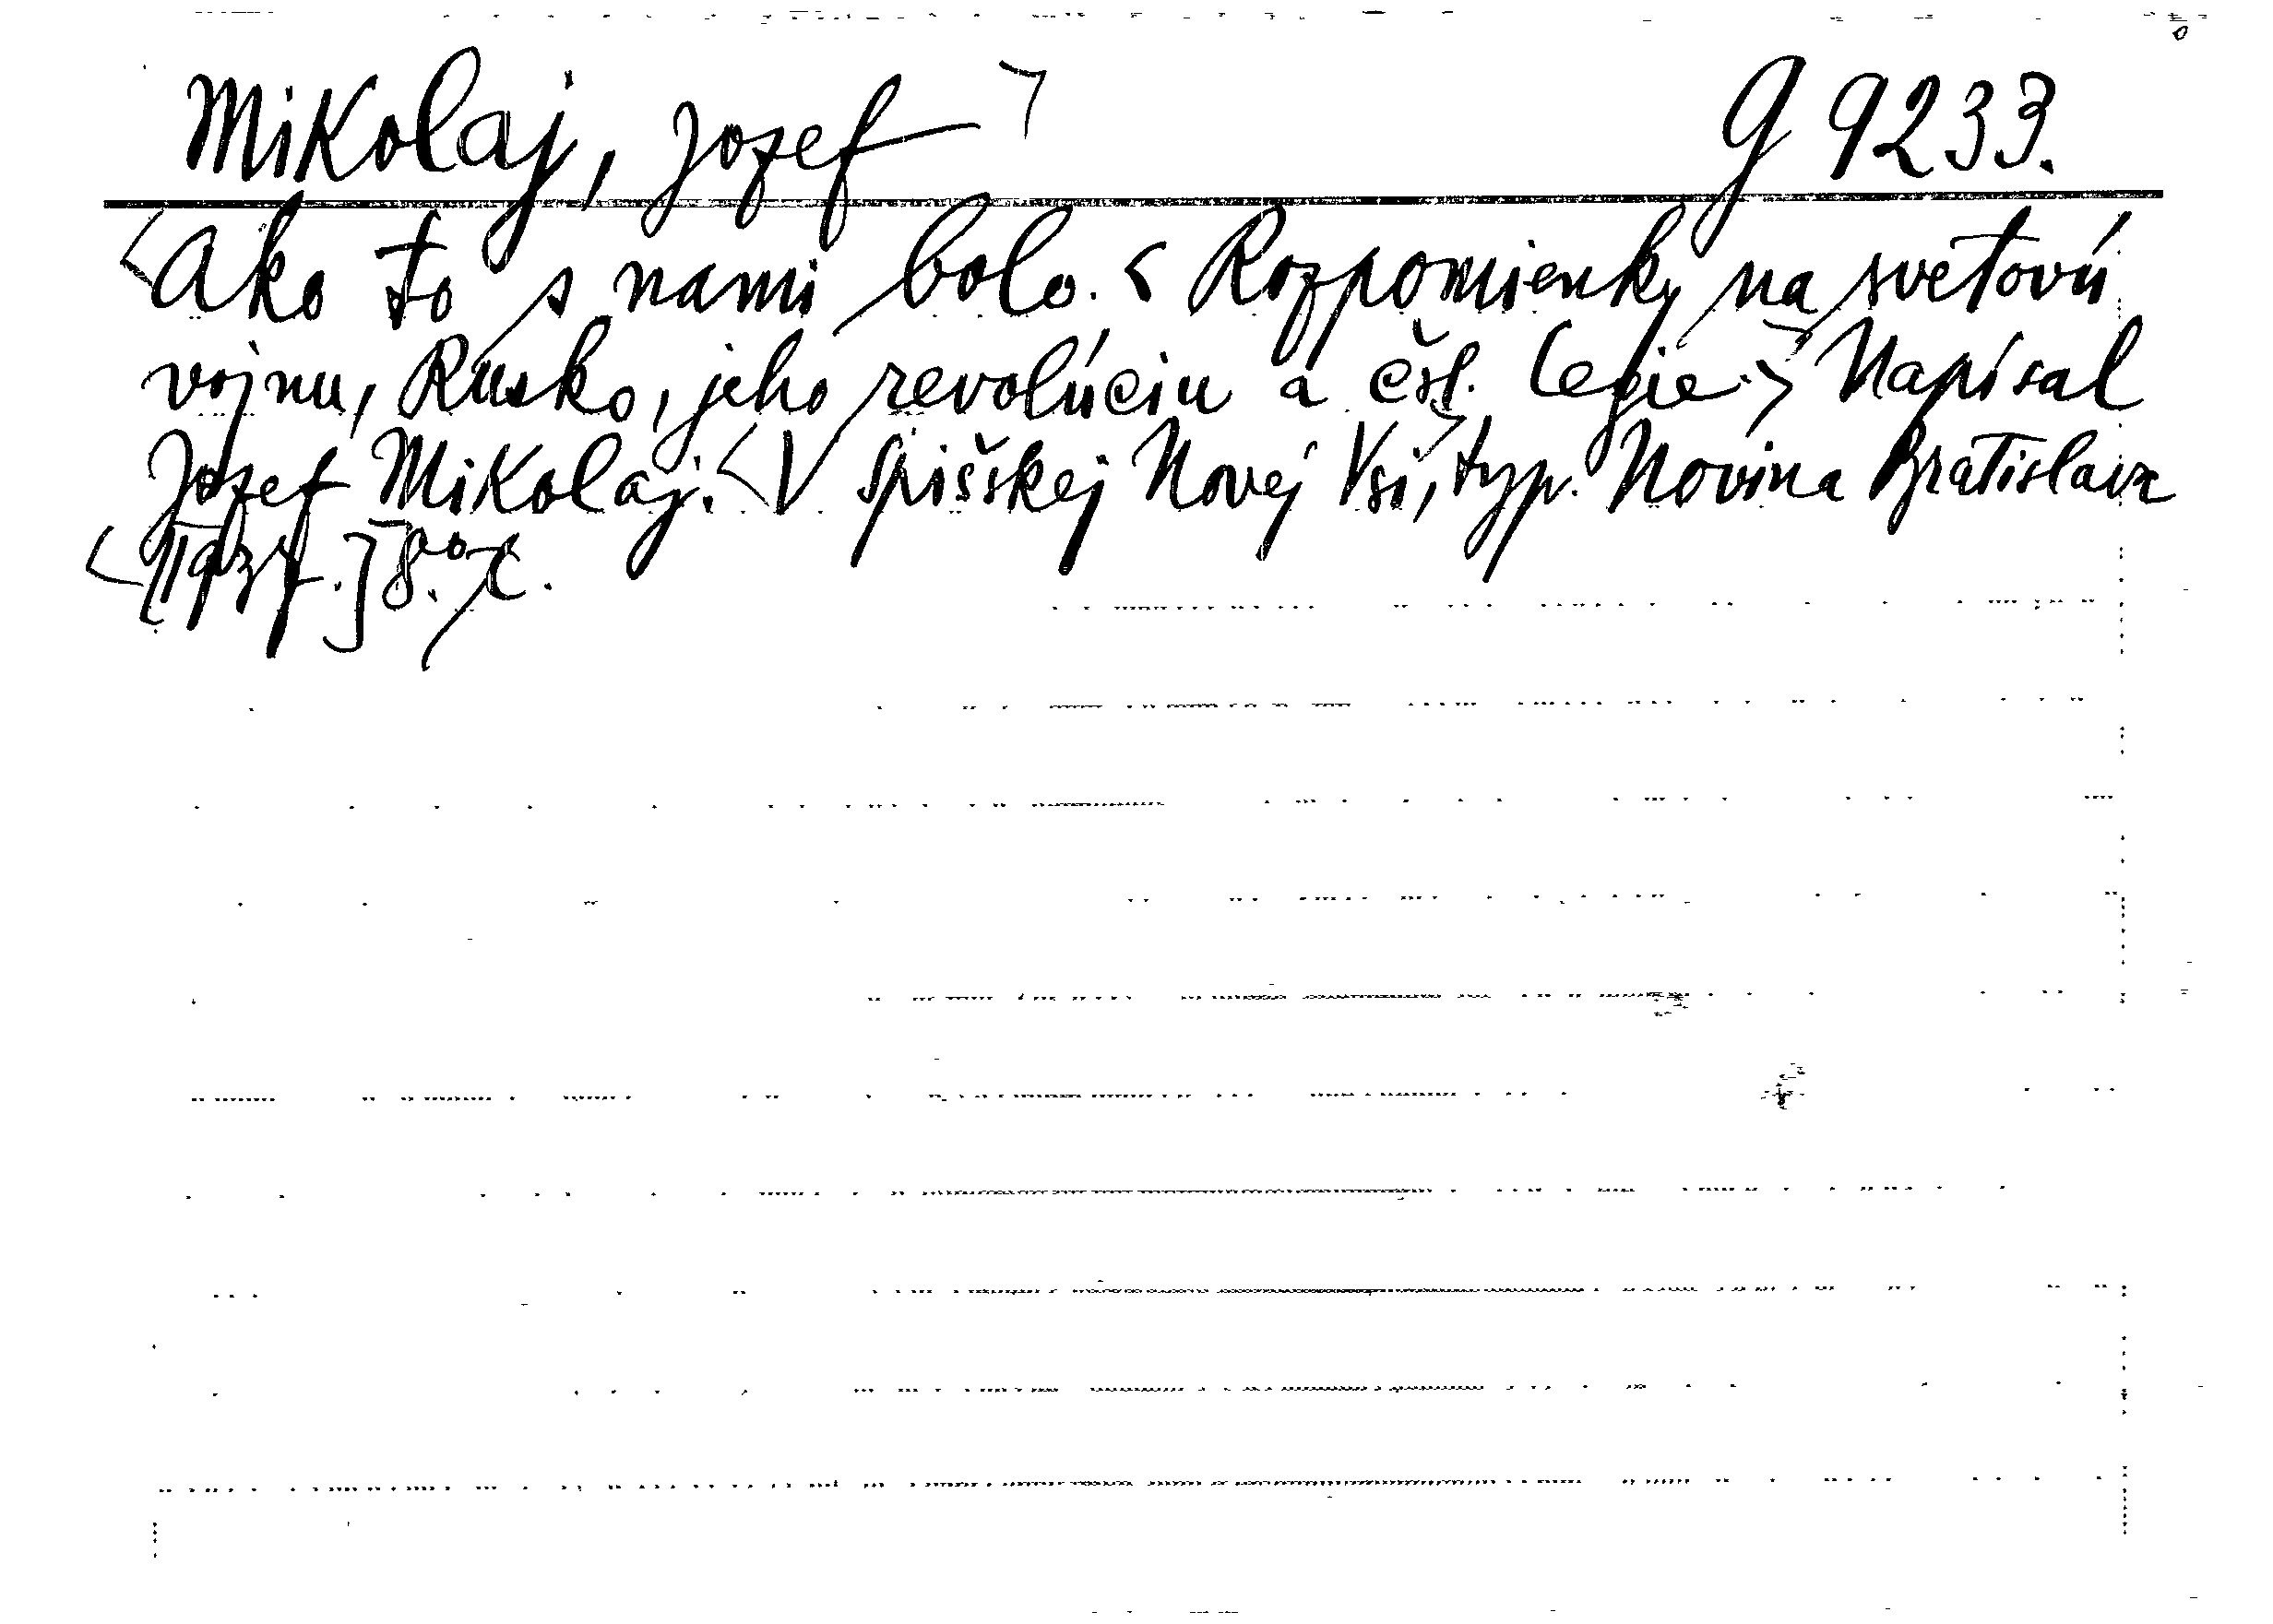 Mikolaj, Jozef   G 9233.
Ako to s nami bolo. Rozpomienky na svetovú
vojnu, Rusko, jeho revolúciu a čsl. legie. Napísal
Jozef Mikolaj. V Spišskej Novej Vsi, typ. Novina Bratislava
[1937.] 8.°